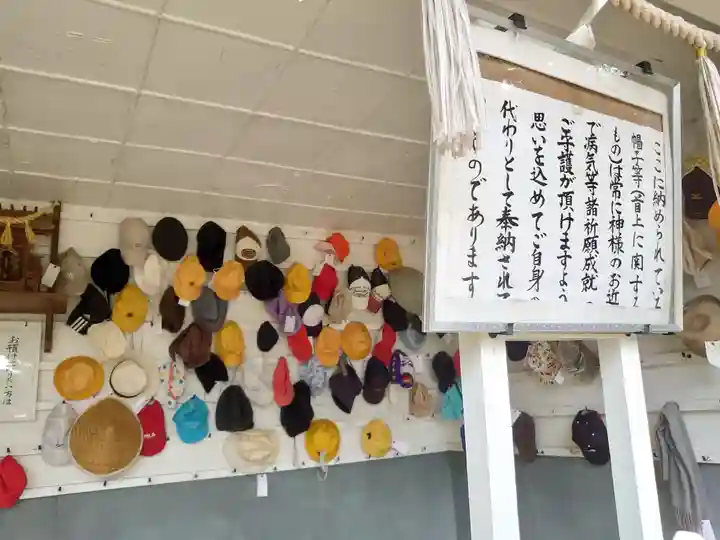 ここに納められている
帽子等(首上に関する
もの)は常に神様のお近
で病気等諸祈願成就
ご守護が頂けますよう
思いを込めてご自身
代わりとして奉納されて
ものであります
お頒けし
たい方は